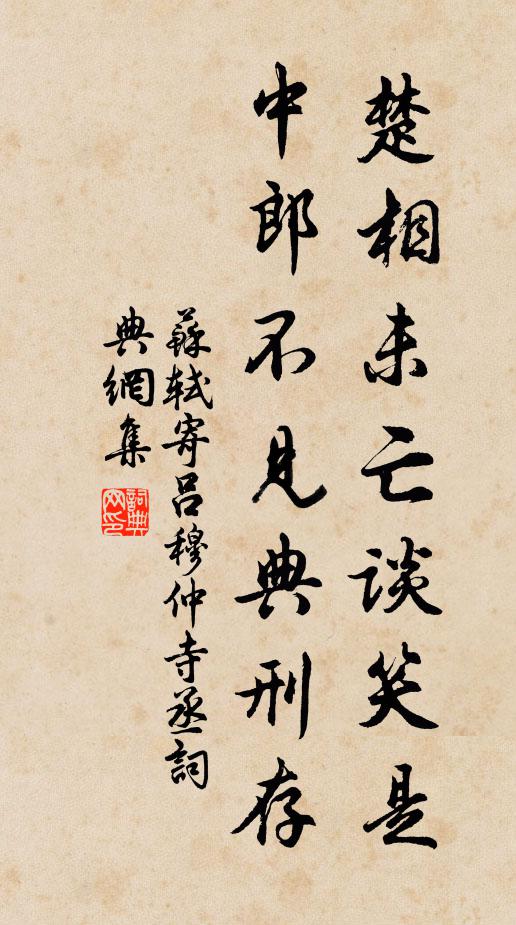 楚相未亡談笑是
中郎不見典刑存
蘇軾寄呂穆仲寺丞詞
典網集
詞典網印